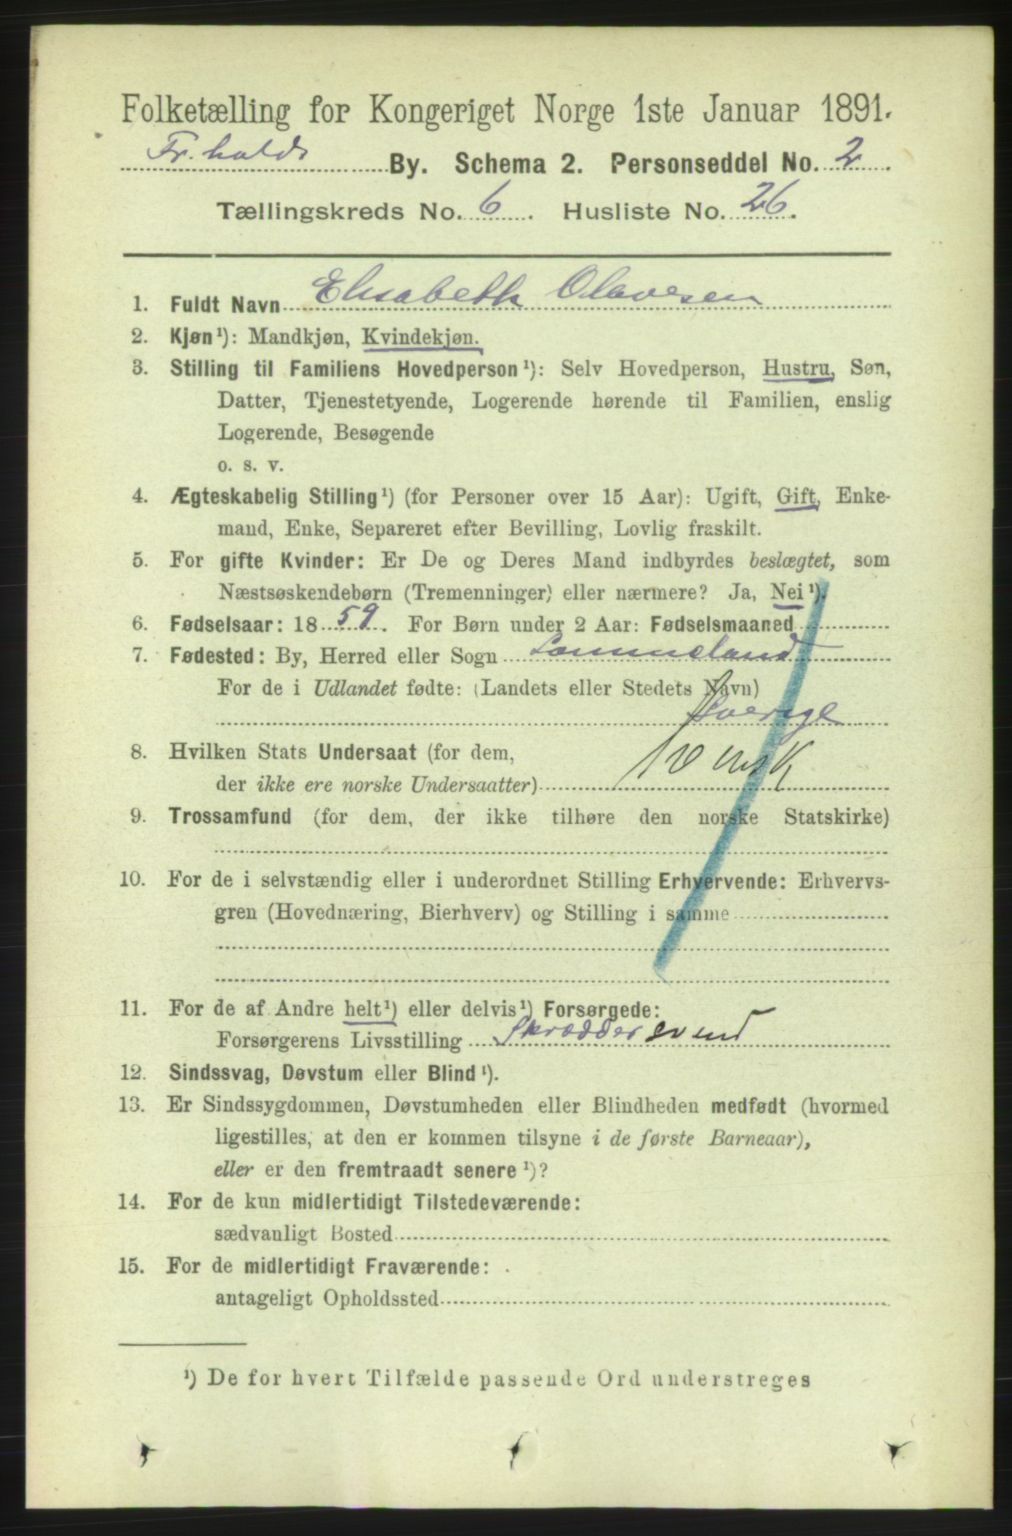 Folketælling for Kongeriget Norge 1ste Januar 1891.
Fr.halds By. Schema 2. Personseddel No. 2.
Tællingskreds No. 6. Husliste No. 26.
1. Fuldt Navn Elisabeth Olavesen
2. Kjøn¹): Mandkjøn, Kvindekjøn.
3. Stilling til Familiens Hovedperson¹): Selv Hovedperson, Hustru, Søn,
Datter, Tjenestetyende, Logerende hørende til Familien, enslig
Logerende, Besøgende
o. s. v.
4. Ægteskabelig Stilling¹) (for Personer over 15 Aar): Ugift, Gift, Enke-
mand, Enke, Separeret efter Bevilling, Lovlig fraskilt.
5. For gifte Kvinder: Er De og Deres Mand indbyrdes beslægtet, som
Næstsøskendebørn (Tremenninger) eller nærmere? Ja, Nei¹).
6. Fødselsaar: 1859. For Børn under 2 Aar: Fødselsmaaned
7. Fødested: By, Herred eller Sogn
For de i Udlandet fødte: (Landets eller Stedets Navn)
Sverige
8. Hvilken Stats Undersaat (for dem,
der ikke ere norske Undersaatter)
9. Trossamfund (for dem, der ikke tilhøre den norske Statskirke)
10. For de i selvstændig eller i underordnet Stilling Erhvervende: Erhvervs-
gren (Hovednæring, Bierhverv) og Stilling i samme
11. For de af Andre helt¹) eller delvis¹) Forsørgede:
Forsørgerens Livsstilling Skræddersvend
12. Sindssvag, Døvstum eller Blind¹).
13. Er Sindssygdommen, Døvstumheden eller Blindheden medfødt (hvormed
ligestilles, at den er kommen tilsyne i de første Barneaar),
eller er den fremtraadt senere¹)?
14. For de kun midlertidigt Tilstedeværende:
sædvanligt Bosted
15. For de midlertidigt Fraværende:
antageligt Opholdssted
¹) De for hvert Tilfælde passende Ord understreges